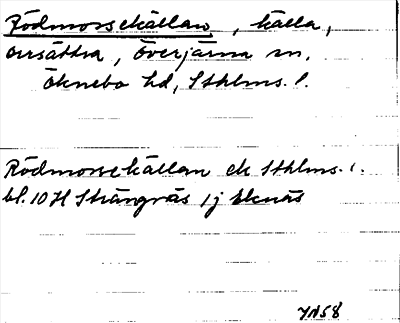 Rödmossekällan, källa,
Orrsättra, Överjärna sn,
Öknebo hd, Sthlms. l.
Rödmossekällan ek Sthlms. l.
bl. 10 H Strängnäs 1j Eknäs